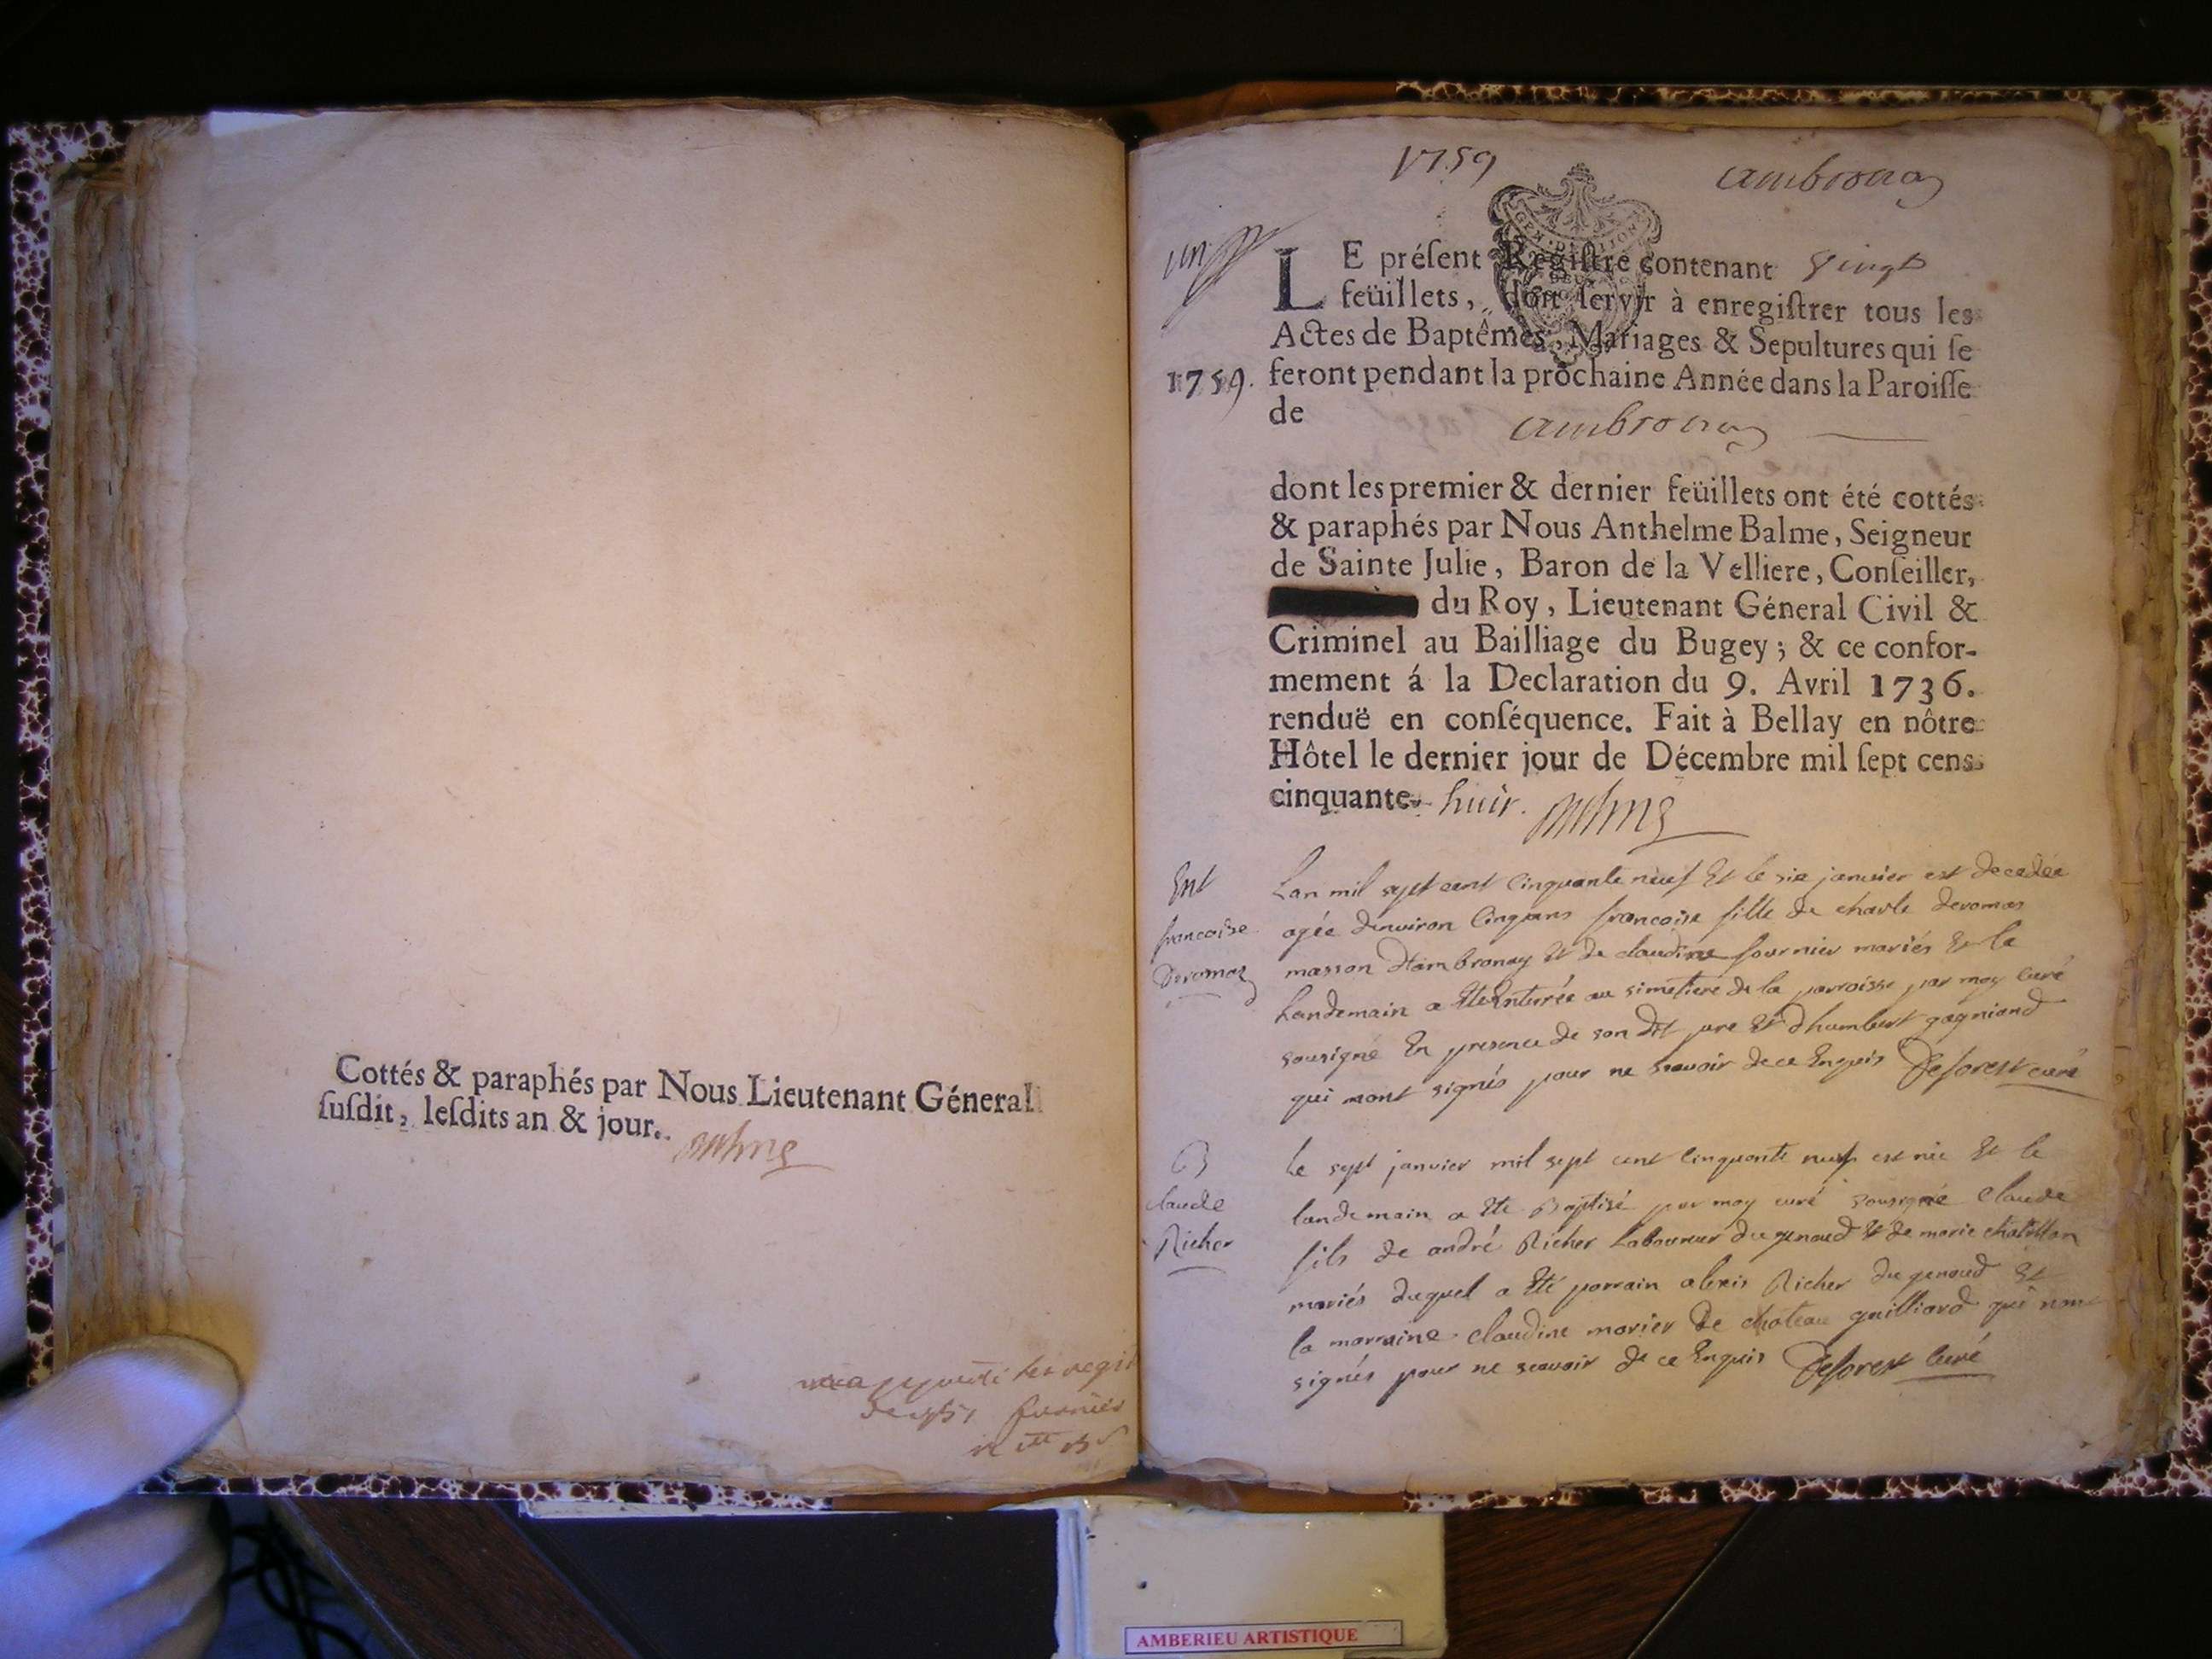 Cottés & paraphés par Nous Lieutenant Géneral
ſuſdit, leſdits an & jour.
1759
ambronay
un
LE préſent Regiſtre contenant vingt
feüillets, doit ſervir à enregiſtrer tous les
Actes de Baptêmes, Mariages & Sepultures qui ſe
1759. feront pendant la prochaine Année dans la Paroiſſe
de ambronay
dont les premier & dernier feüillets ont été cottés
& paraphés par Nous Anthelme Balme, Seigneur
de Sainte Julie, Baron de la Velliere, Conſeiller,
du Roy, Lieutenant Géneral Civil &
Criminel au Bailliage du Bugey; & ce confor-
mement á la Declaration du 9. Avril 1736.
renduë en conſéquence. Fait à Bellay en nôtre
Hôtel le dernier jour de Décembre mil ſept cens
cinquante- huit. Balme
Ent
francoise
Deromas
Lan mil sept cent cinquante neuf Et le six janvier est decedée
agée denviron cinq ans francoise fille de charle deromas
masson dambronay Et de claudine fournier mariés Et le
landemain a Eté Enterrée au simetiere de la parroisse par moy curé
sousigné En presence de son dit pere Et dhumbert gagniard
qui mont signés pour ne scavoir de ce Enquis Deforest curé
B
claude
Richer
Le sept janvier mil sept cent cinquante neuf est née Et le
landemain a Eté Baptisé par moy curé sousigné claude
fils de andré Richer Laboureur du genoud Et de marie chatillon
mariés duquel a Eté parrain alexis Richer du genoud Et
la marraine claudine marier de chateau gailliard qui nont
signés pour ne scavoir de ce Enquis Deforest curé
AMBERIEU ARTISTIQUE